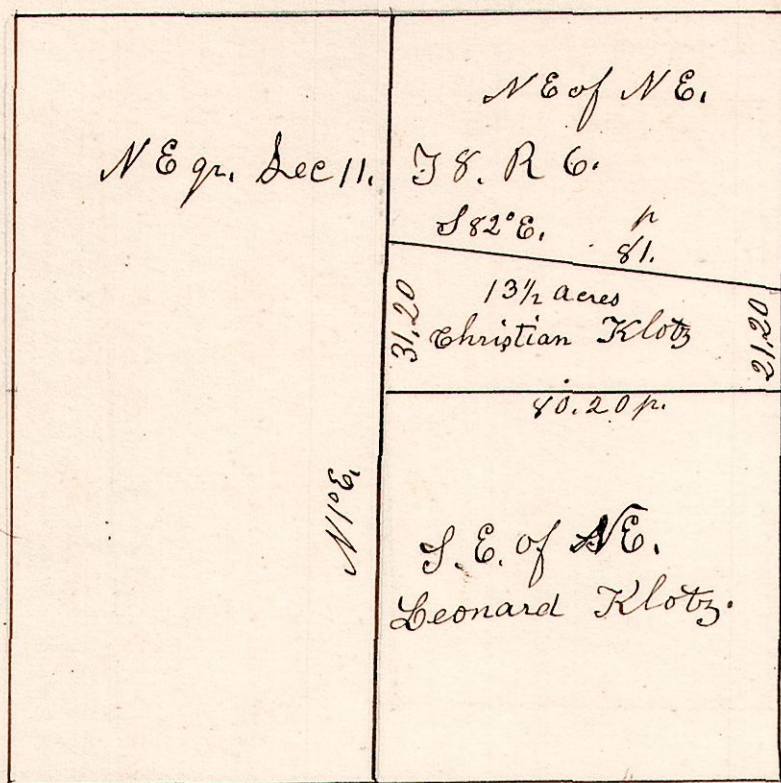 NE of NE.
NE qr. Sec 11.
T 8. R 6.
S 82° E.
p
81.
31,20
13½ acres
Christian Klotz
21,20
80.20 p.
N 1° E.
S. E. of NE.
Leonard Klotz.